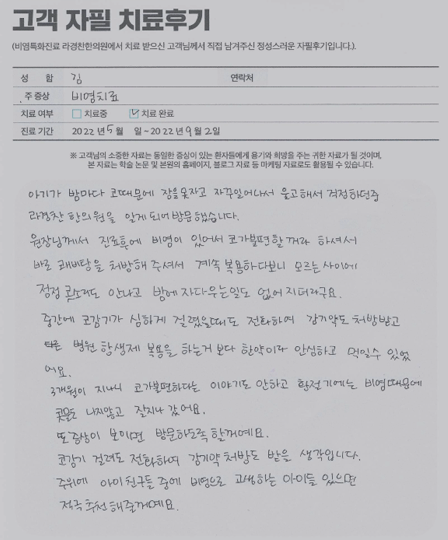 고객 자필 치료후기
(비염특화진료 라경찬한의원에서 치료 받으신 고객님께서 직접 남겨주신 정성스러운 자필후기입니다.)
성 함 김 연락처
주 증상 비염치료
치료 여부 치료중 치료 완료
치료 기간 2022년 5월 일 ~ 2022년 9월 2일
※ 고객님의 소중한 자료는 동일한 증상이 있는 환자들에게 용기와 희망을 주는 귀한 자료가 될 것이며,
본 자료는 학술 논문 및 본원의 홈페이지, 블로그 자료 등 마케팅 자료로도 활용될 수 있습니다.
아기가 밤마다 코때문에 잠을못자고 자꾸일어나서 울고해서 걱정하던중
라경찬 한의원을 알게되어 방문했습니다.
원장님께서 진료후에 비염이 있어서 코가불편할꺼라 하셔서
바로 쾌비탕을 처방해주셔서 계속 복용하다보니 모르는사이에
점점 코소리도 안나고 밤에 자다우는일도 없어지더라구요.
중간에 코감기가 심하게 걸렸을때도 전화하여 감기약도 처방받고
다른 병원 항생제 복용을 하는거 보다 한약이라 안심하고 먹일수 있었
어요.
3개월이 지나니 코가불편하다는 이야기도 안하고 환절기에는 비염때문에
콧물도 나지않고 잘지나갔어요.
또 증상이 보이면 방문하도록 할께예요.
코감기 걸려도 전화하여 감기약 처방도 받을 생각입니다.
주위에 아이친구들 중에 비염으로 고생하는 아이들 있으면
적극추천해줄께예요.